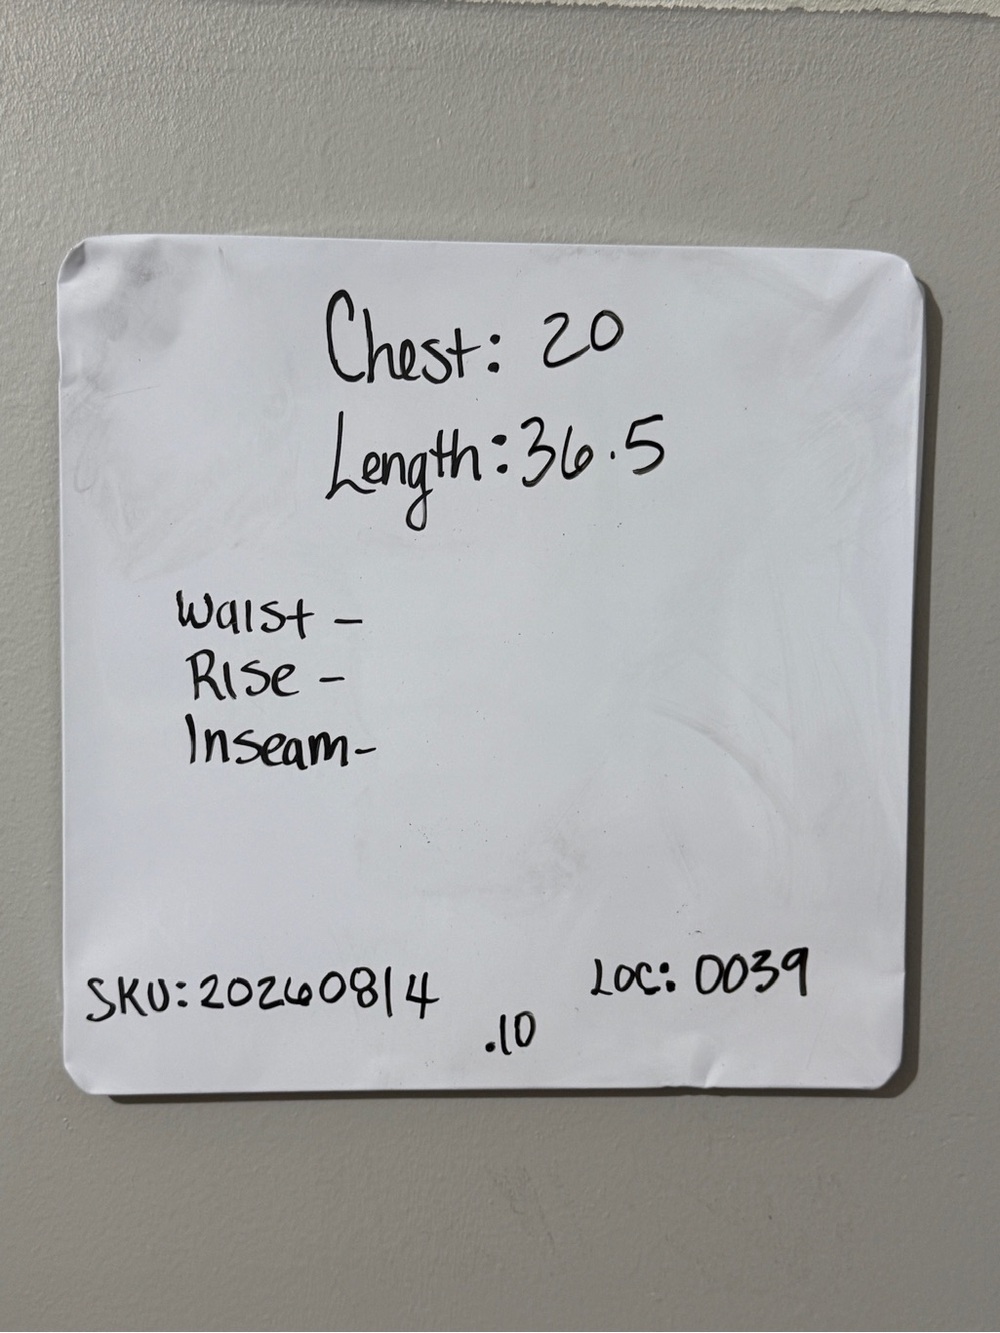 Chest: 20
Length: 36.5
Waist -
Rise -
Inseam-
SKU: 20260814
LOC: 0039
.10